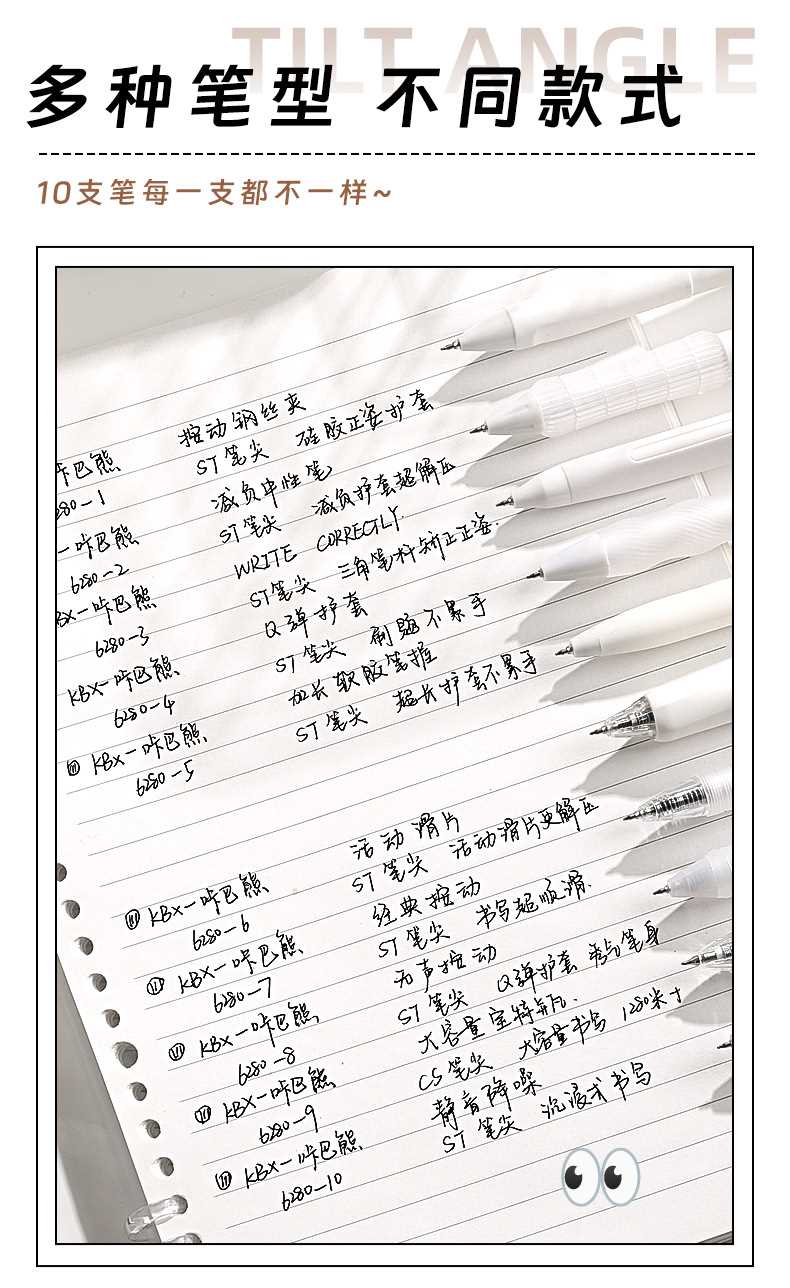 TILT ANGLE
多种笔型 不同款式
10支笔每一支都不一样~
按动钢丝夹
咔巴熊 ST笔尖 硅胶正姿护套
280-1 减负中性笔
-咔巴熊 ST笔尖 减负护套超解压
6280-2 WRITE CORRECTLY
BX-咔巴熊 ST笔尖 三角笔杆矫正正姿.
6280-3 Q弹护套
KBX-咔巴熊 ST笔尖 刷题不累手
6280-4 加长软胶笔握
KBX-咔巴熊 ST笔尖 超长护套不累手
6280-5
活动滑片
KBX-咔巴熊 ST笔尖 活动滑片更解压
6280-6 经典按动
KBX-咔巴熊 ST笔尖 书写超顺滑.
6280-7 无声按动
KBX-咔巴熊 ST笔尖 Q弹护套 笔身
6280-8 大容量宝特瓶.
KBX-咔巴熊 CS笔尖 大容量书写 1280米
6280-9 静音降噪
KBX-咔巴熊 ST笔尖 沉浸式书写
6280-10